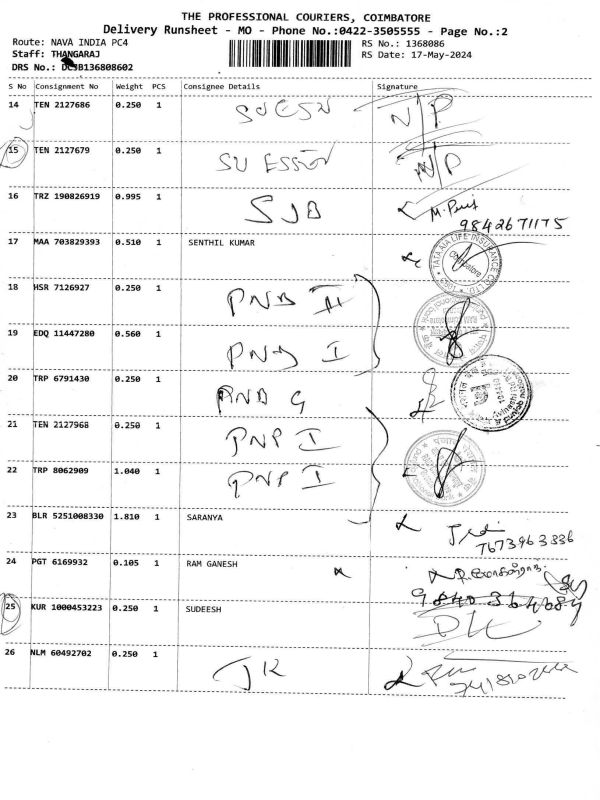 THE PROFESSIONAL COURIERS, COIMBATORE
Delivery Runsheet - MO - Phone No.:0422-3505555 - Page No.:2
Route: NAVA INDIA PC4 RS No.: 1368086
Staff: THANGARAJ RS Date: 17-May-2024
DRS No.: DCSB136808602
S No Consignment No Weight PCS Consignee Details Signature
14 TEN 2127686 0.250 1 N/P
15 TEN 2127679 0.250 1 N/P
16 TRZ 190826919 0.995 1 SJB
9842671175
17 MAA 703829393 0.510 1 SENTHIL KUMAR
TATA AIA LIFE INSURANCE CO LTD.
Coimbatore
18 HSR 7126927 0.250 1 PNB II
19 EDQ 11447280 0.560 1 PNB I
20 TRP 6791430 0.250 1 PNB G
21 TEN 2127968 0.250 1 PNP I
22 TRP 8062909 1.040 1 PNP I
23 BLR 5251008330 1.810 1 SARANYA
7673963336
24 PGT 6169932 0.105 1 RAM GANESH
25 KUR 1000453223 0.250 1 SUDEESH
26 NLM 60492702 0.250 1 JK